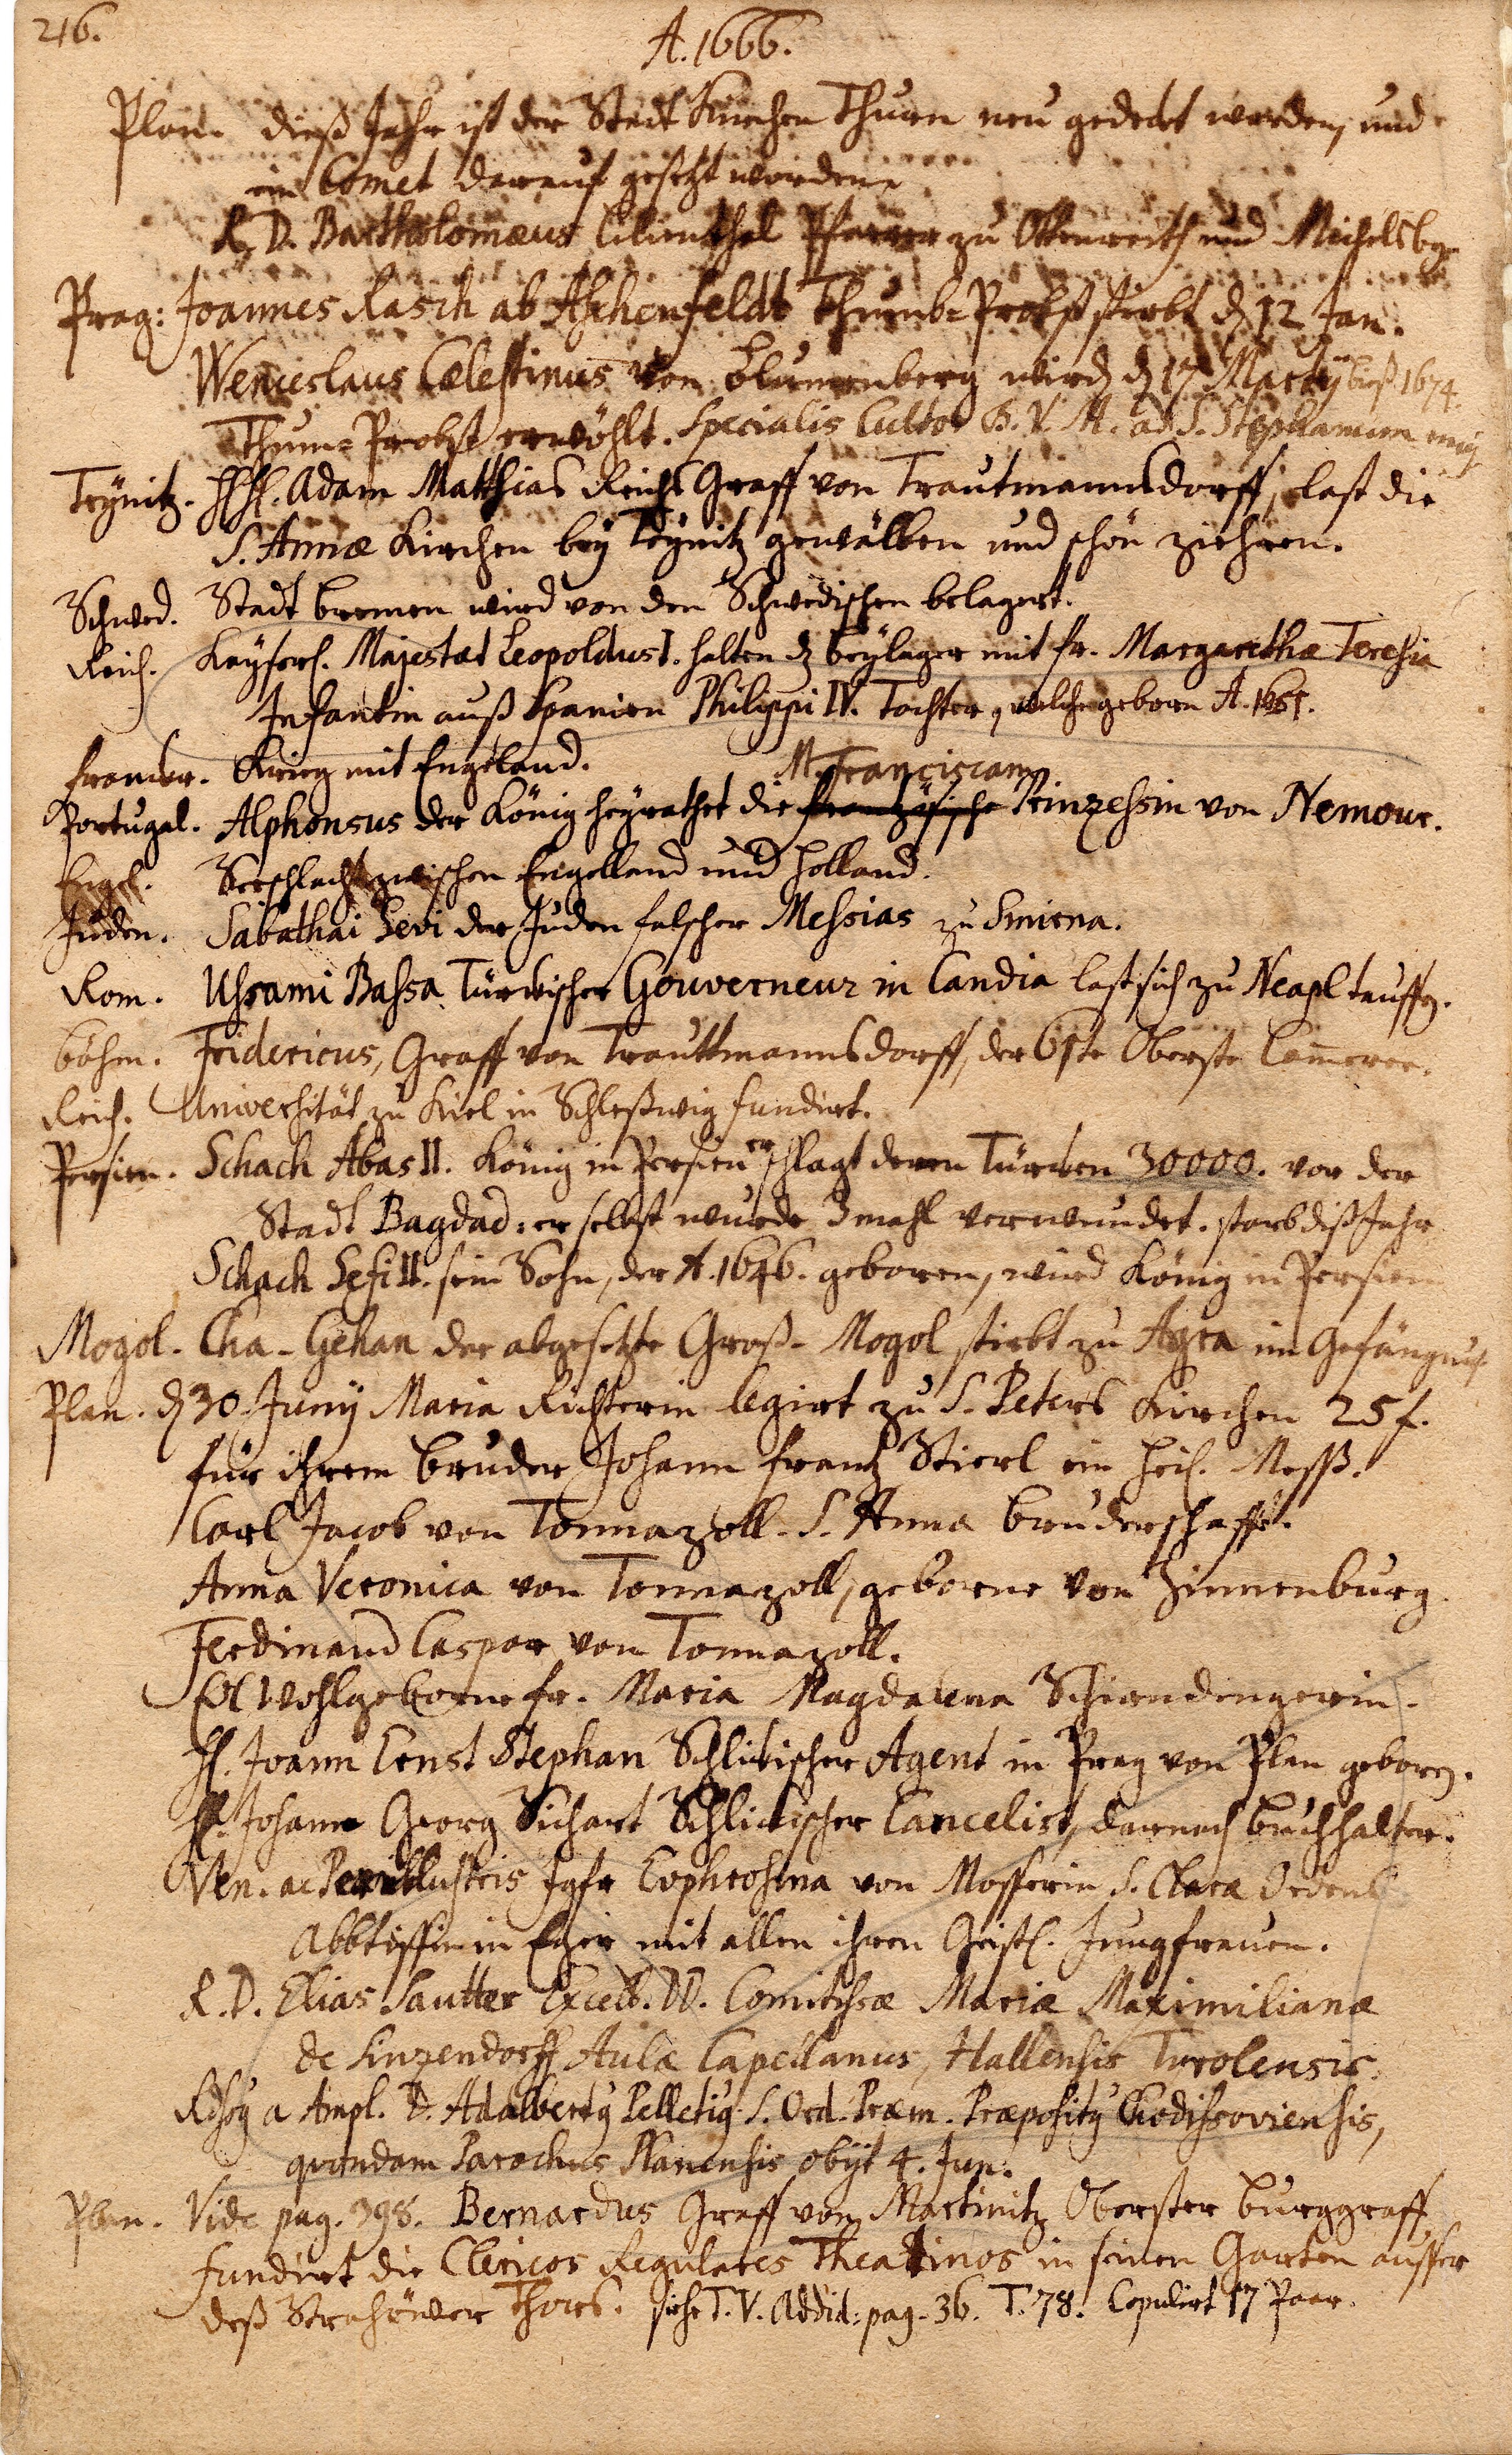 216.
A. 1666.
Plan. dieß Jahr ist der Stadt Kirchen Thurn neu gedeckt worden, und
ein Comet darauf gesetzt worden.
R. D. Bartholomæus Lilienthal Pfarrer zu Ottenreith und Michelsbg.
Prag: Joannes Rasch ab Aschenfeldt Thumb-Probst stirbt d. 12 Jan.
Wenceslaus Cælestinus von Blumenberg wird d. 17 Martij biß 1674.
Thum-Probst erwöhlt. Specialis Cultor B. V. M. ad S. Stephanum
Teÿnitz. HH. Adam Matthias Reichs Graff von Trautmannsdorff, last die
S. Annæ Kirchen beÿ Teÿnitz gewälben und schön ziehren.
Schwed. Stadt Bremen wird von den Schwedischen belagert.
Reich. Kaÿserl. Majestæt Leopoldus I. halten d. beÿlager mit fr. Margarethæ Teresia
Infantin auß Spanien Philippi IV. Tochter, welche geborn A. 1651.
Franckr. Krieg mit Engeland.
M. Franciscam
Portugal. Alphonsus der König heÿrathet die frantzösische Prinzessin von Nemour.
Engel. Seeschlacht zwischen Engelland und Holland.
Juden. Sabathai Sevi der Juden falscher Messias zu Smirna.
Rom. Ussami Bassa Türckischer Gouverneur in Candia last sich zu Neapl tauffen.
Böhm. Fridericus, Graff von Trauttmannsdorff, der 61te Oberste Camerer.
Reich. Universität zu Kiel in Schleßwig fundirt.
Persien. Schach Abas II. König in Persien erschlagt deren Türcken 30000. vor der
Stadt Bagdad: er selbst wurde 3 mahl verwundet. starb diß Jahr
Schach Sefi II. sein Sohn, der A. 1646. geboren, wird König in Persien
Mogol. Cha-Gehan der abgesetzte Groß-Mogol stirbt zu Agra im Gefängnuß.
Plan. d. 30 Junÿ Maria Richterin legirt zu S. Peters Kirchen 25 f.
für ihrem bruder Johann Frantz Stierl ein heil. Meß.
Carl Jacob von Tonnazoll. S. Anna Bruderschafft.
Anna Veronica von Tonnazoll, geborne von Zinnenburg.
Ferdinand Caspar von Tonnazoll.
Wohlgeborne fr. Maria Magdalena Schirndingerin.
H. Joann Ernst Stephan Schlickischer Agent in Prag von Plan geboren.
H. Johann Georg Sichart Schlickischer Cancelist, darnach buchhalter.
Ven. ac Perillustris Jgfr Euphrosina von Mosserin S. Clara Ordens
Abbtissin in Eger mit allen ihren Geistl. Jungfrauen.
R. D. Elias Sautter Excell. D. Comitissæ Mariæ Maximilianæ
de Sinzendorff Aulæ Capellanus, Hallensis Tirolensis.
a Ampl. D. Adalbertus Pelletius S. Ord. Præm. Præpositus Chodissoviensis,
quondam Parochus Planensis obijt 4. Jun.
Plan. Vide pag. 398. Bernardus Graff von Martinitz Oberster Burggraff
fundirt die Clericos Regulares Theatinos in seinen Garten ausser
deß Strahöwer Thors. siehe T. V. Addid: pag. 36. T. 78. Copulirt 17 Paar.